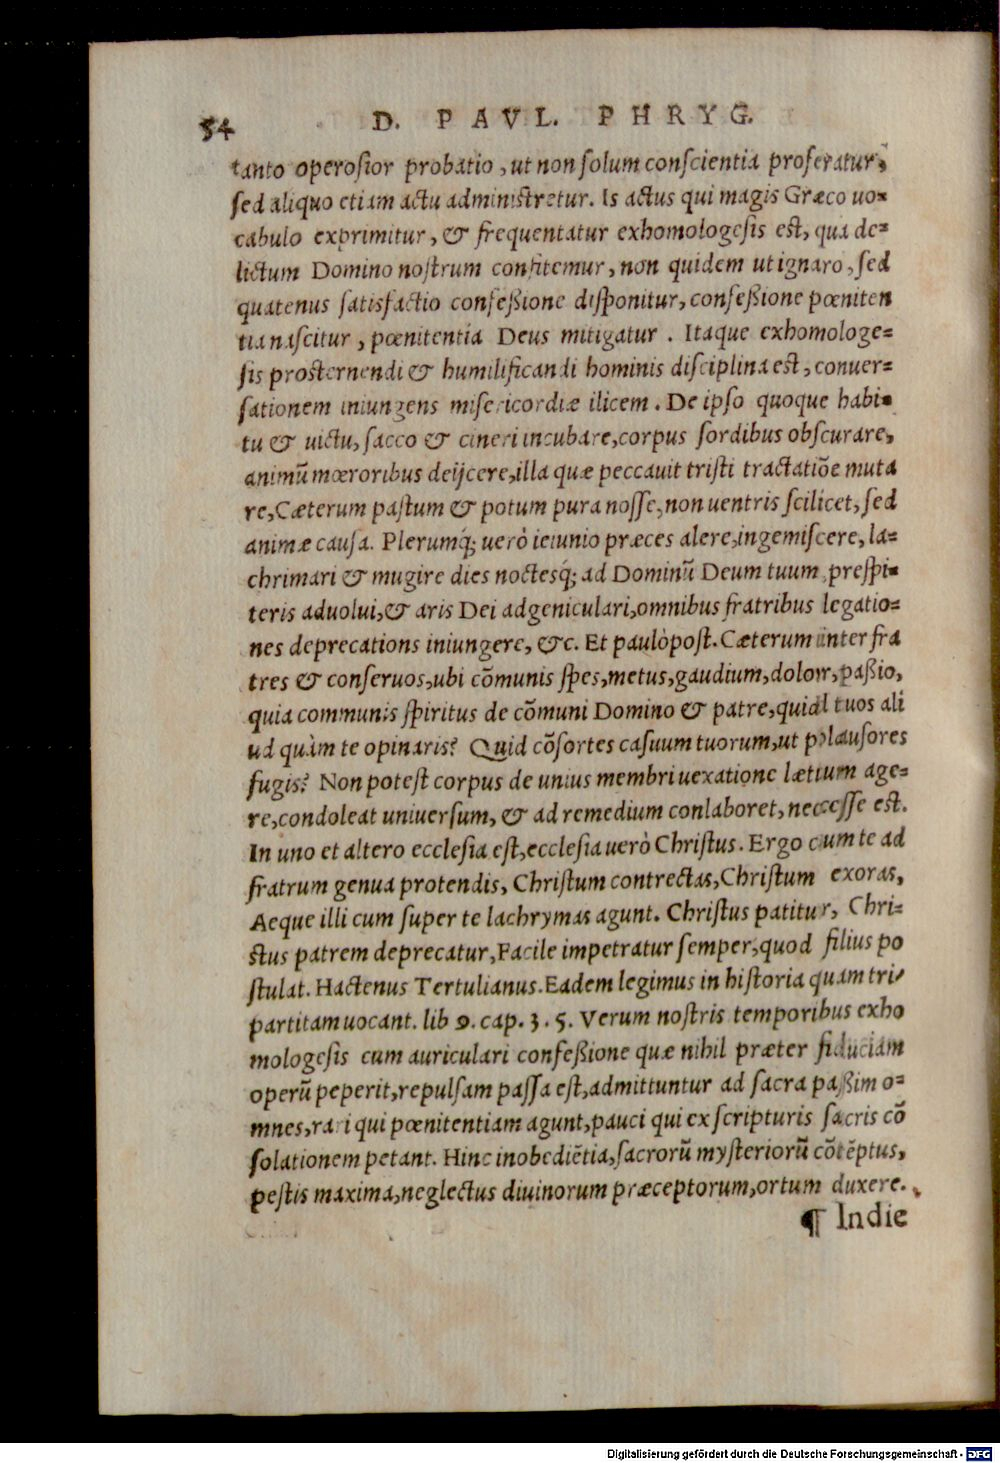 54 D. PAVL. PHRYG.
tanto operosior probatio, ut non solum conscientia proferatur,
sed aliquo etiam actu administretur. Is actus qui magis Græco uo=
cabulo exprimitur, & frequentatur exhomologesis est, qua de=
lictum Domino nostrum confitemur, non quidem ut ignaro, sed
quatenus satisfactio confeßione disponitur, confeßione pœniten
tia nascitur, pœnitentia Deus mitigatur. Itaque exhomologe=
sis prosternendi & humilificandi hominis disciplina est, conuer=
sationem iniungens misericordiæ ilicem. De ipso quoque habi=
tu & uictu, sacco & cineri incubare, corpus sordibus obscurare,
animū mœroribus deijcere, illa quæ peccauit tristi tractatiõe muta
re, Cæterum pastum & potum pura nosse, non uentris scilicet, sed
animæ causa. Plerumq́; uerò ieiunio præces alere, ingemiscere, la=
chrimari & mugire dies noctesq́; ad Dominū Deum tuum, prespi=
teris aduolui, & aris Dei adgeniculari, omnibus fratribus legatio=
nes deprecations iniungere, &c. Et paulòpost. Cæterum inter fra
tres & conseruos, ubi cõmunis spes, metus, gaudium, dolor, paßio,
quia communis spiritus de cõmuni Domino & patre, quid tuos ali
ud quàm te opinaris? Quid cõsortes casuum tuorum, ut plausores
fugis? Non potest corpus de unius membri uexatione lætium age=
re, condoleat uniuersum, & ad remedium conlaboret, necesse est.
In uno et altero ecclesia est, ecclesia uerò Christus. Ergo cum te ad
fratrum genua protendis, Christum contrectas, Christum exoras,
Aeque illi cum super te lachrymas agunt. Christus patitur, Chri=
stus patrem deprecatur, Facile impetratur semper, quod filius po
stulat. Hactenus Tertulianus. Eadem legimus in historia quam tri/
partitam uocant. lib 9. cap. 3. 5. Verum nostris temporibus exho
mologesis cum auriculari confeßione quæ nihil præter fiduciam
operū peperit, repulsam passa est, admittuntur ad sacra paßim o=
mnes, rari qui pœnitentiam agunt, pauci qui ex scripturis sacris cõ
solationem petant. Hinc inobediẽtia, sacrorū mysteriorū cõtẽptus,
pestis maxima, neglectus diuinorum præceptorum, ortum duxere.
¶ Indie
Digitalisierung gefördert durch die Deutsche Forschungsgemeinschaft - DFG